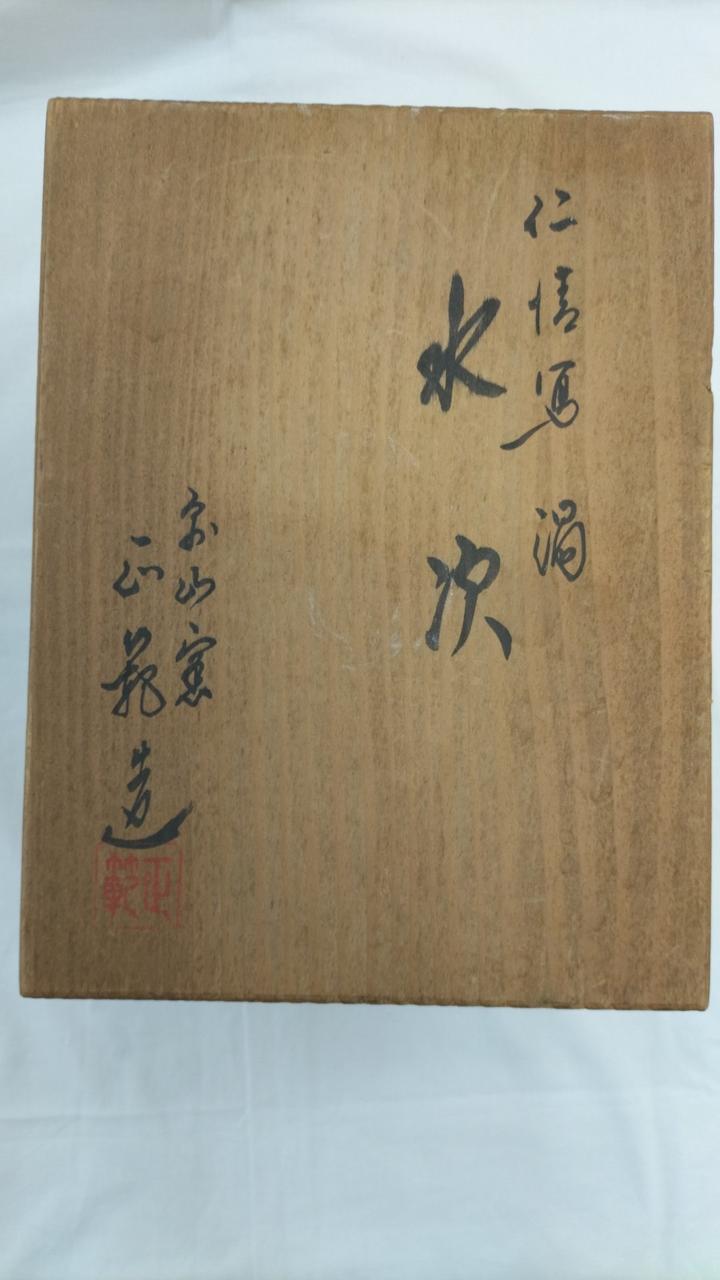 仁清写 渦
水次
宗山窯
正範造
正範